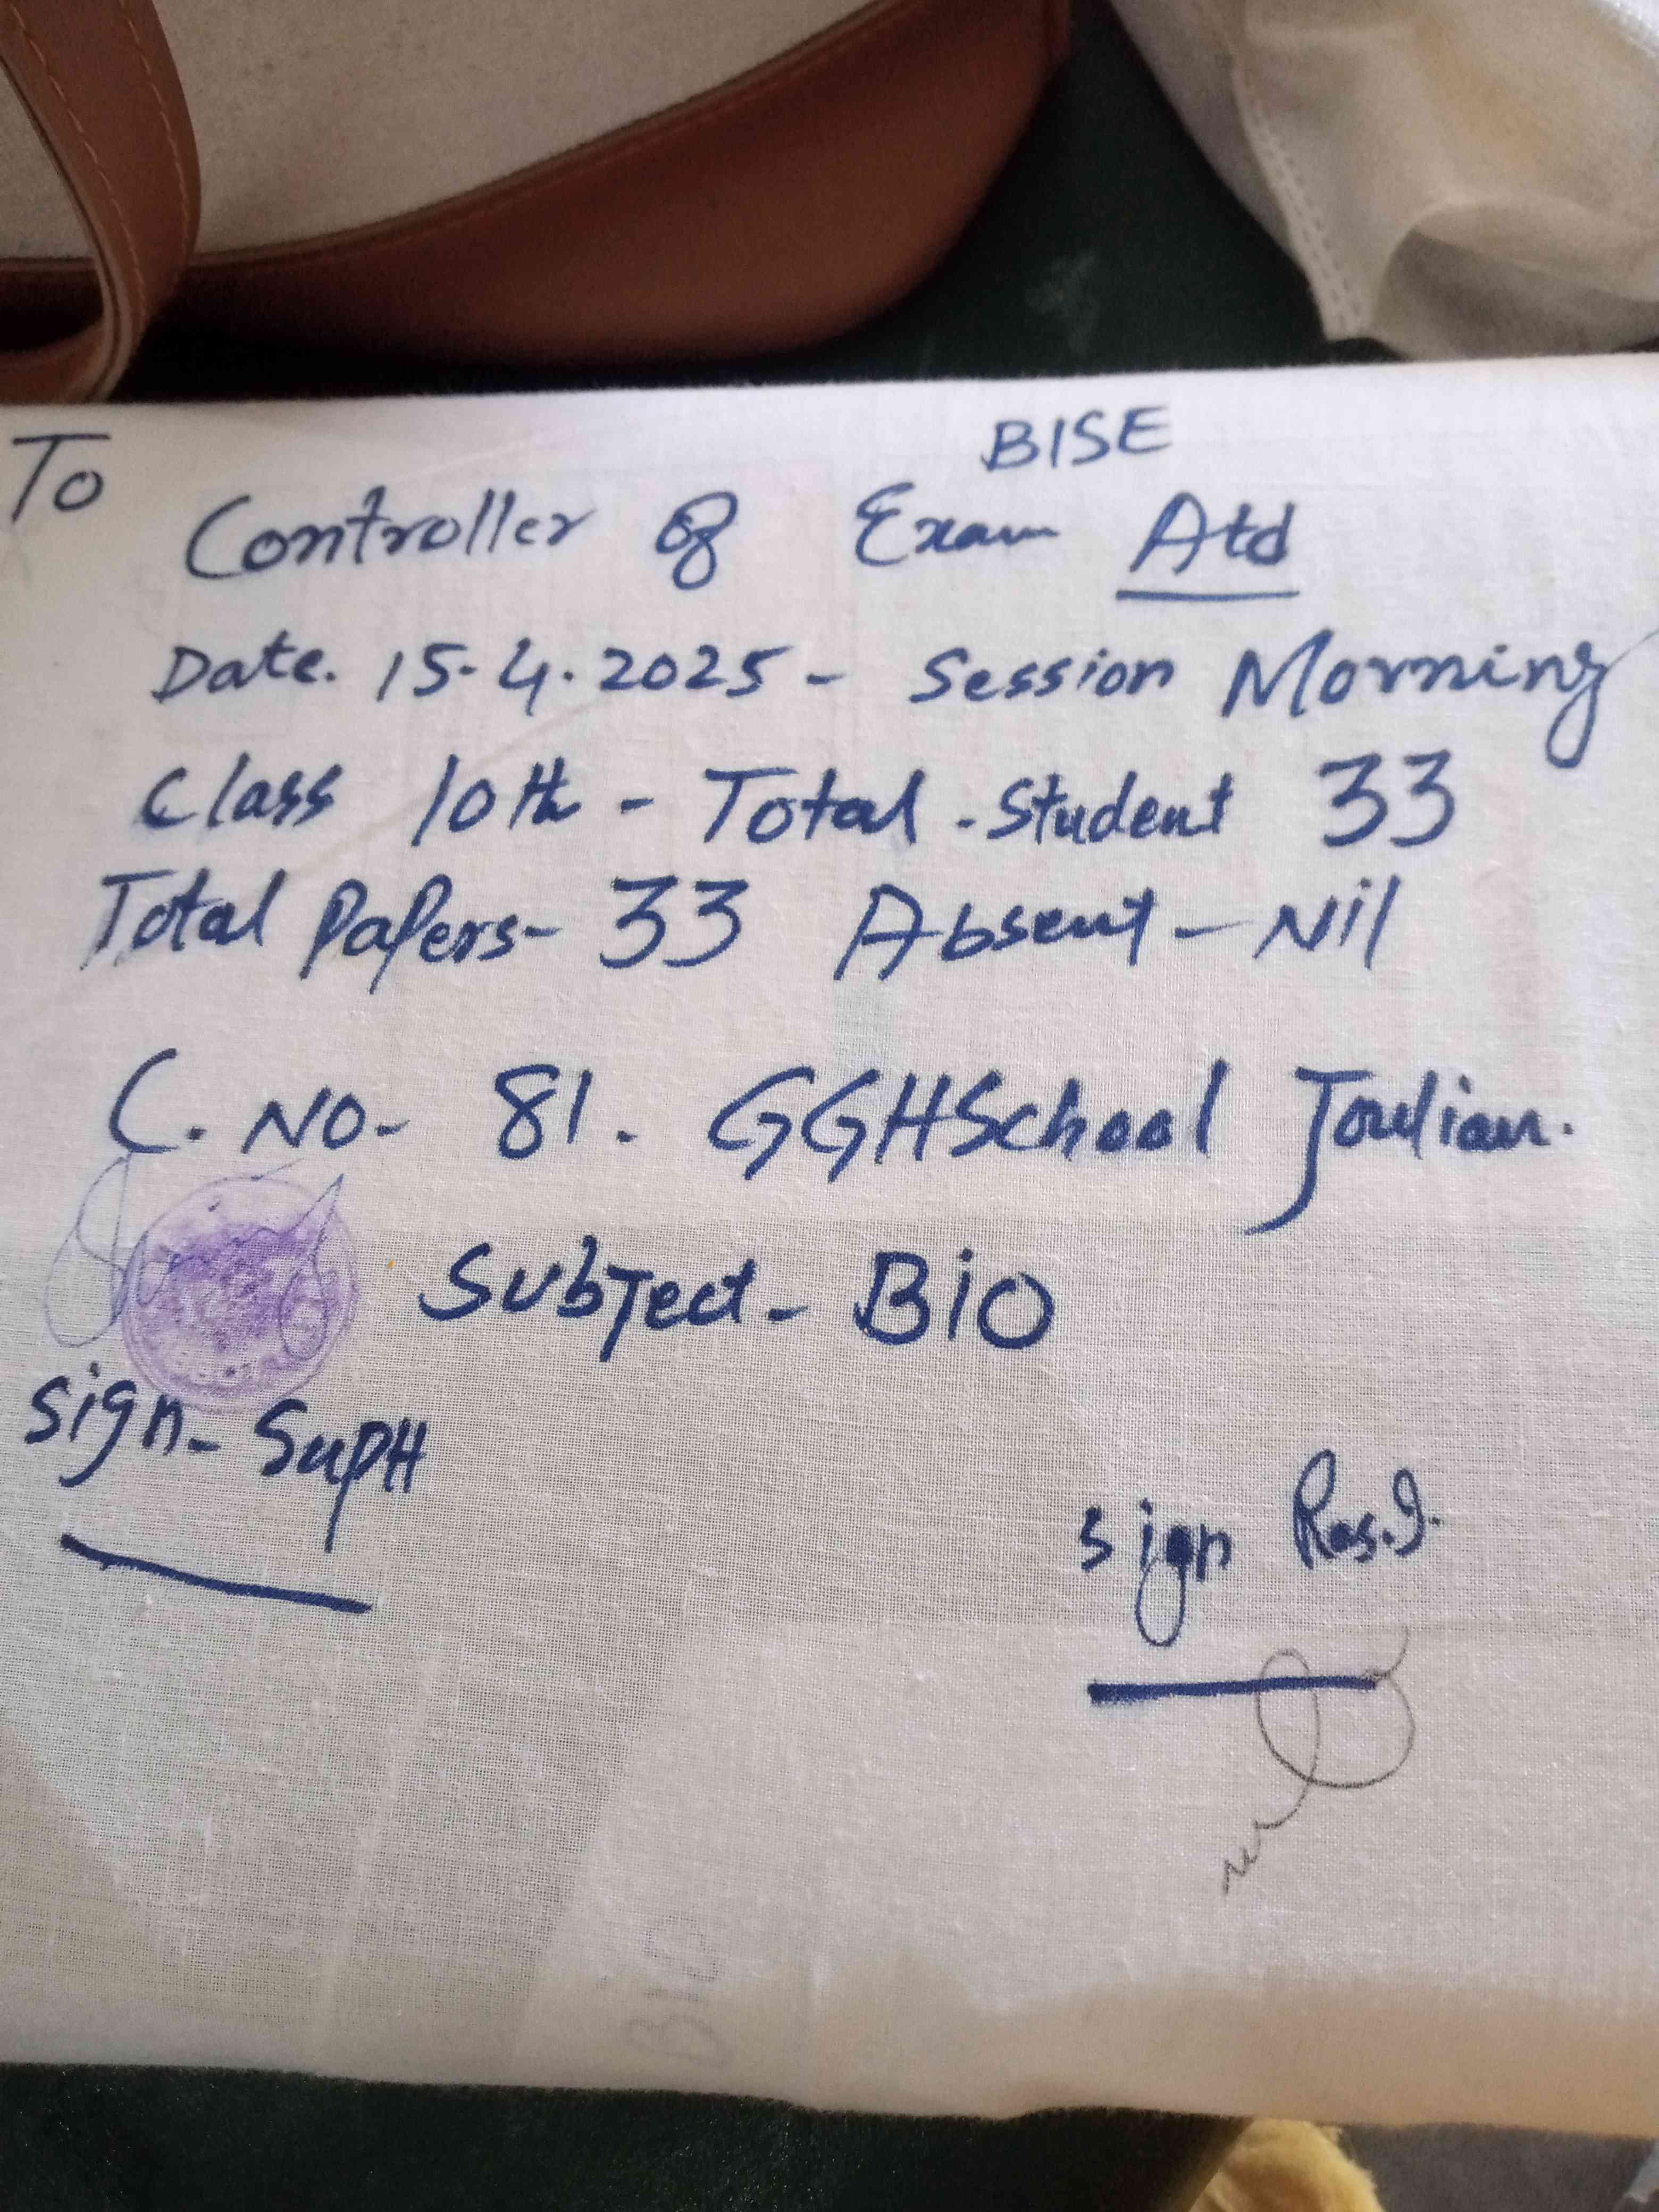 To
BISE
Controller of Exam Atd
Date. 15-4.2025 - Session Morning
Class 10th - Total - Student 33
Total Papers - 33 Absent - Nil
C. No - 81. GGHSchool Joulian.
Subject - BiO
sign - SupH
sign Res.I.
Bio